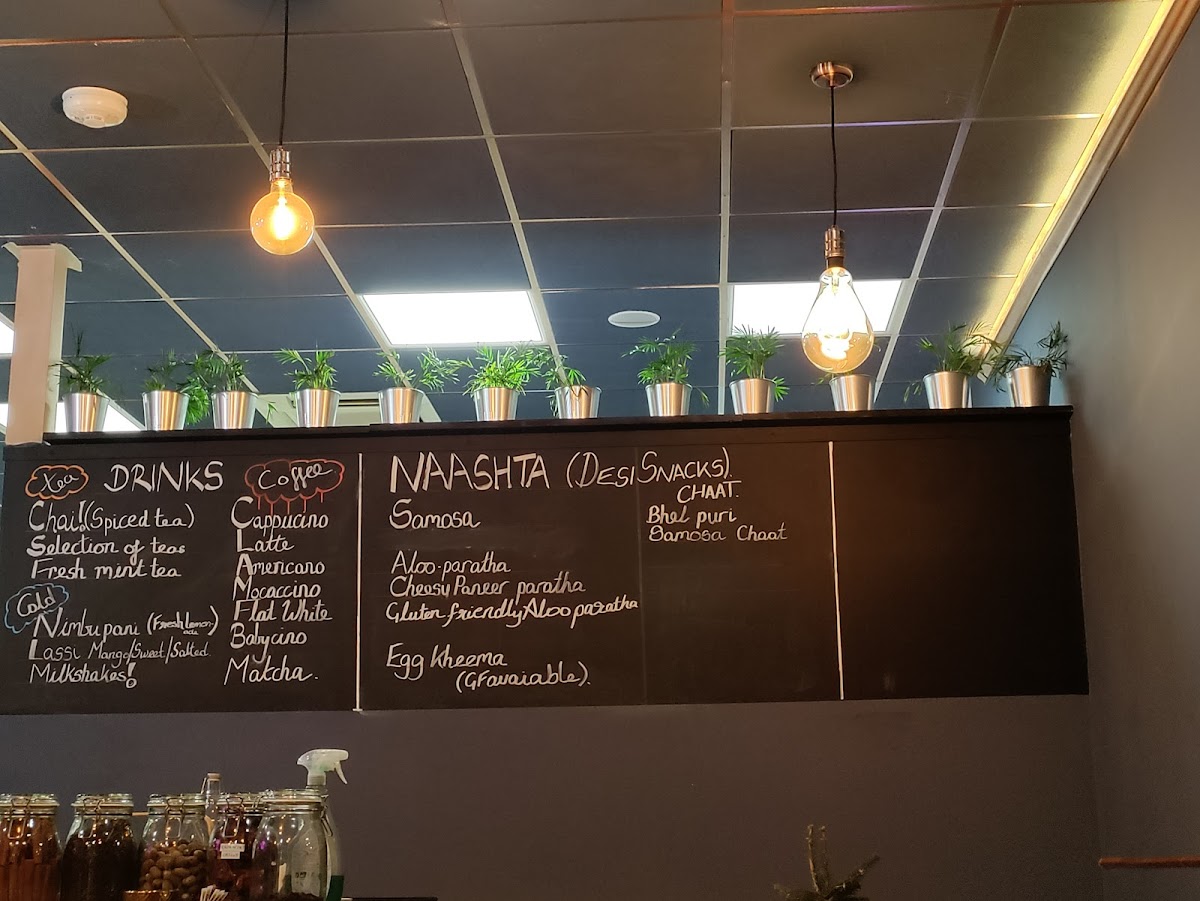 Tea
DRINKS
Chai! (Spiced tea)
Selection of teas
Fresh mint tea
Cold
Nimbu pani (Fresh lemon-
ade)
Lassi Mango/Sweet/Salted
Milkshakes!
Coffee
Cappucino
Latte
Americano
Mocaccino
Flat White
Babycino
Matcha.
NAASHTA (DESI SNACKS).
Samosa
Aloo-paratha
Cheesy Paneer paratha
Gluten friendly Aloo paratha
Egg Kheema
(GF avaiable).
CHAAT.
Bhel puri
Samosa Chaat